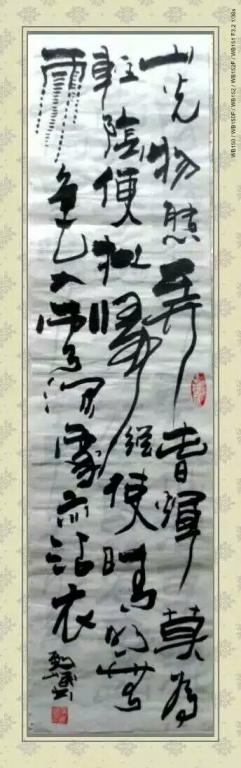 山光物態弄春輝莫為
輕陰便擬歸縱使晴明無
雨色入雲深處亦沾衣
WB150 / WB150F / WB152 / WB152F / WB151 F3.2 1/38s